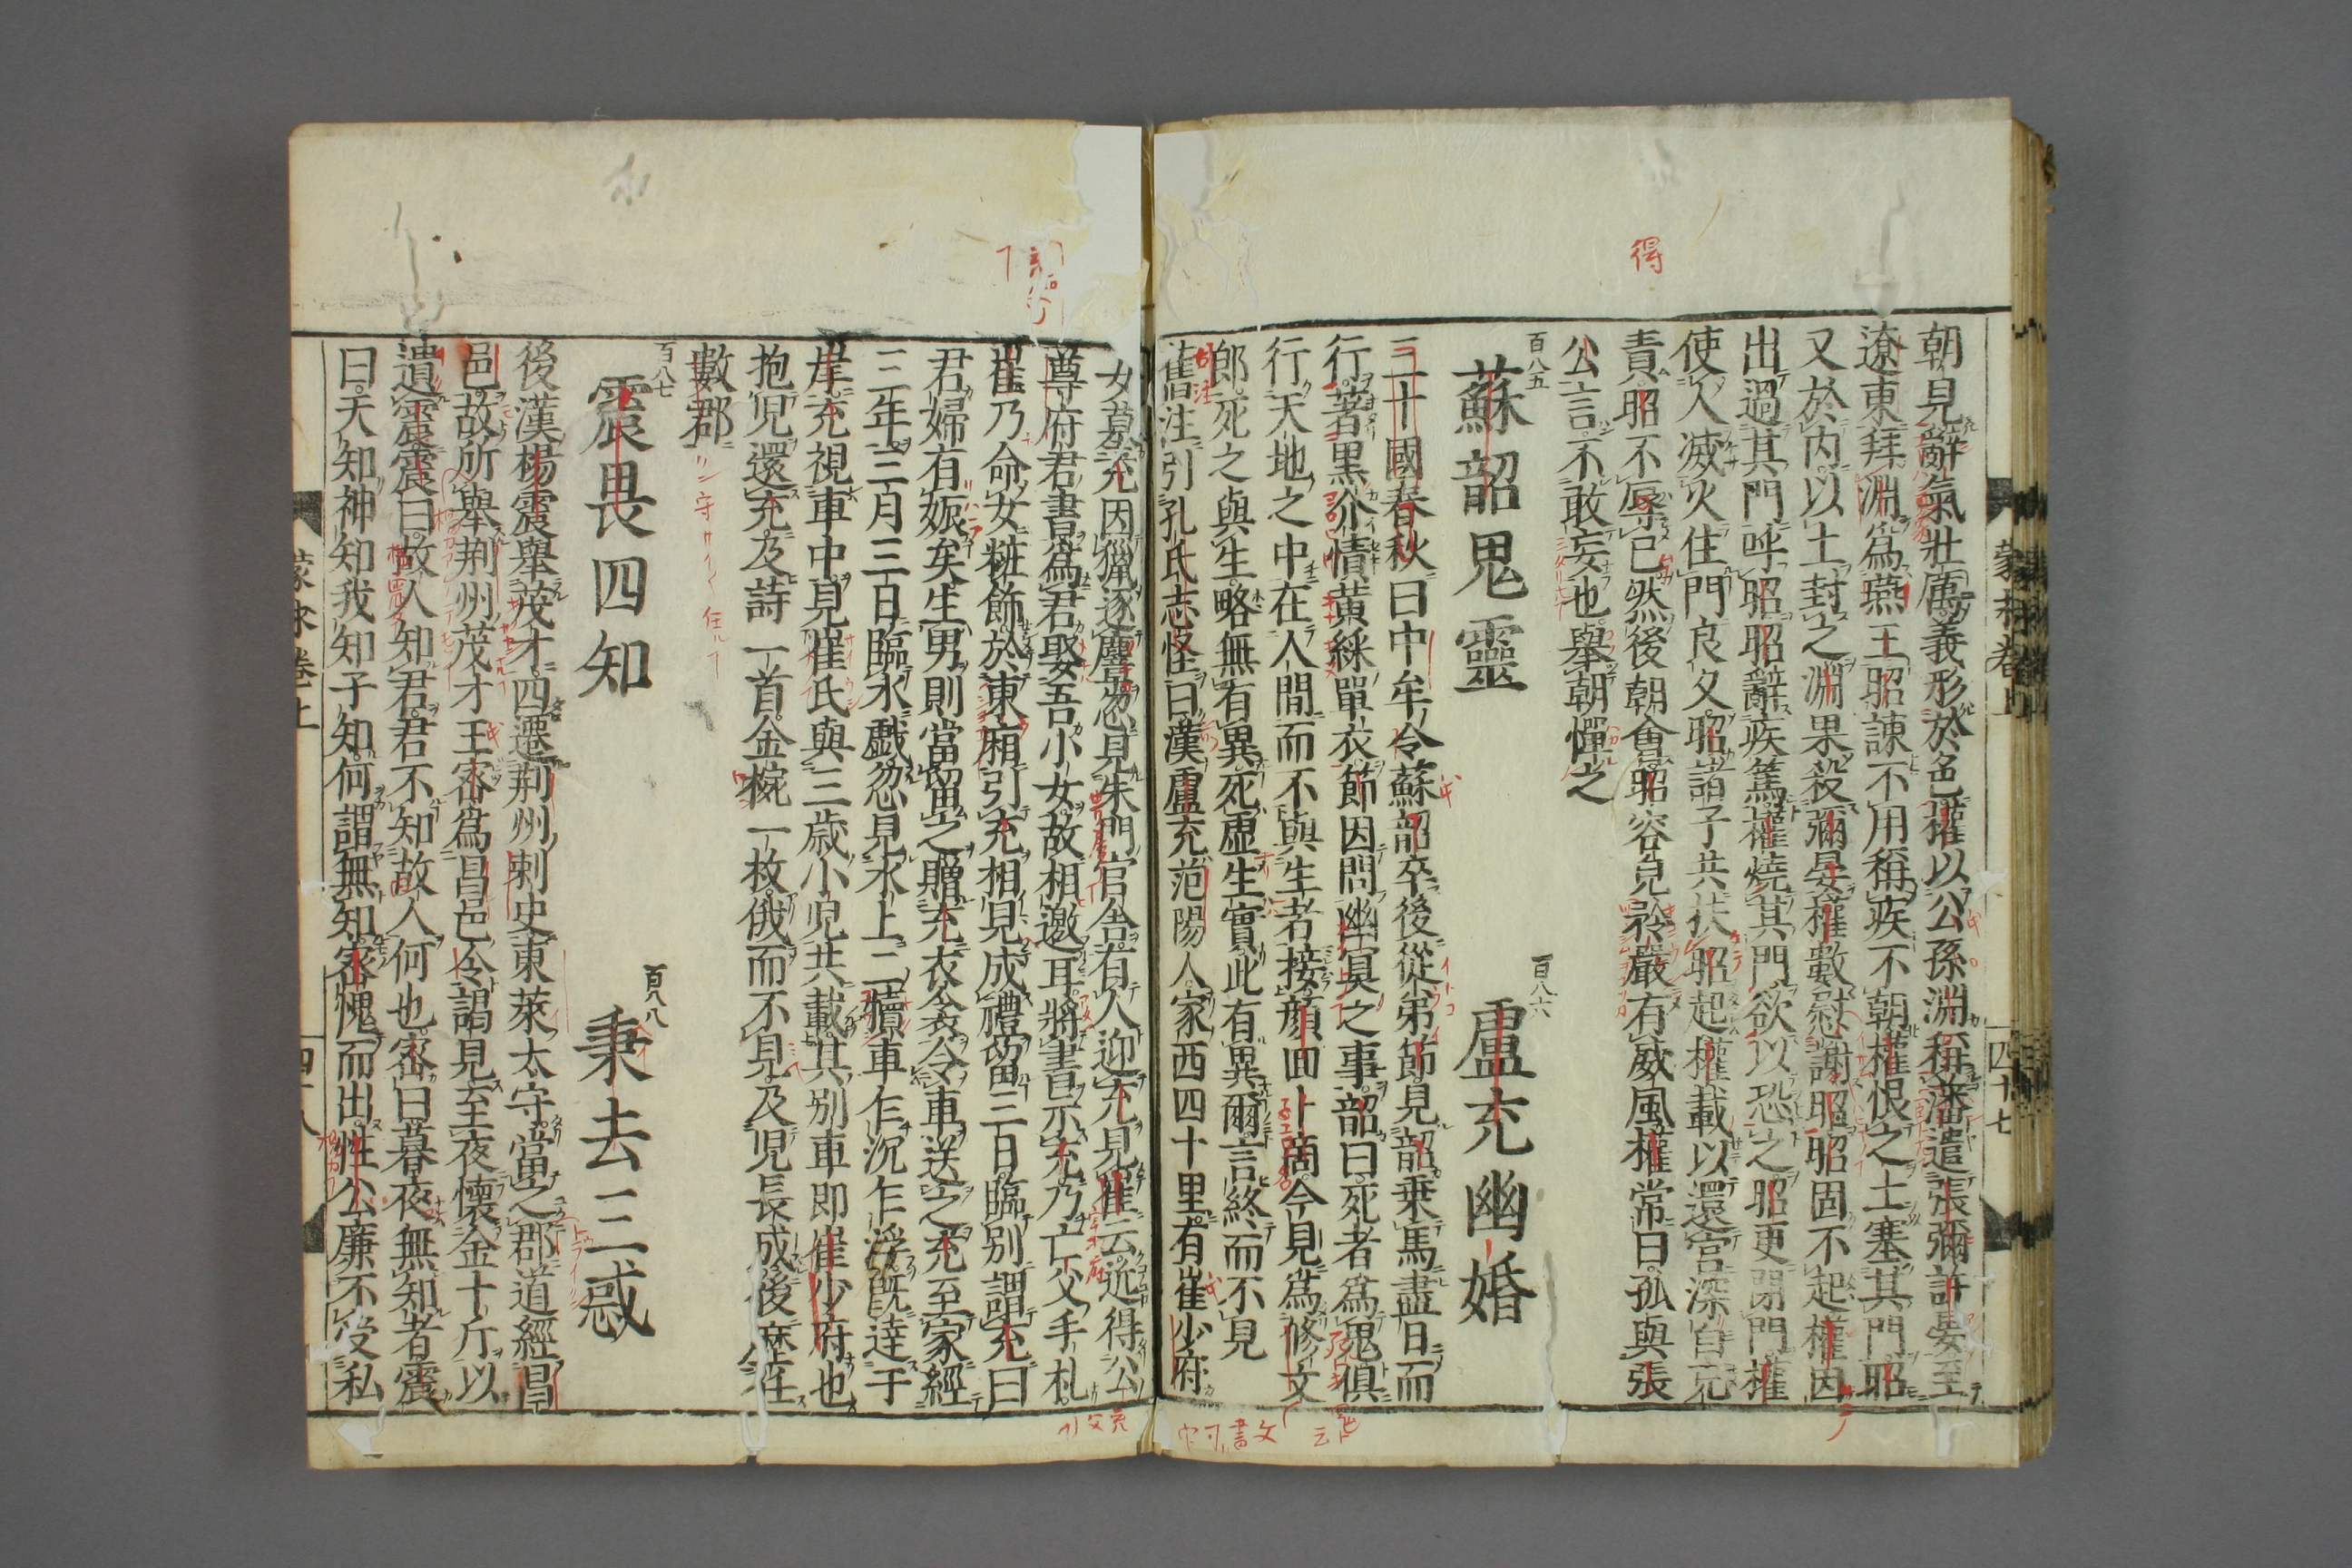 得
朝見辭氣壯厲義形於色權以公孫淵稱藩遣張彌許晏至
遼東拜淵爲燕王昭諫不用稱疾不朝權恨之土塞其門昭
又於内以土封之淵果殺彌晏權數慰謝昭昭固不起權因
出過其門呼昭昭辭疾篤權燒其門欲以恐之昭更閉門權
使人滅火住門良久昭諸子共扶昭起權載以還宮深自克
責昭不得已然後朝會昭容皃矜嚴有威風權常曰孤與張
公言不敢妄也舉朝憚之
百八五 蘇韶鬼靈 百八六 盧充幽婚
三十國春秋曰中牟令蘇韶卒後從弟節見韶乗馬盡日而
行著黒介幘黄綵單衣節因問幽冥之事韶曰死者爲鬼俱
行天地之中在人間而不與生者接顔回卜商今見爲修文
郎死之與生略無有異死虚生實此有異爾言終而不見
舊注引孔氏志怪曰漢盧充范陽人家西四十里有崔少府
女墓充因獵逐麞忽見朱門官舎有人迎充見崔云近得公
尊府君書爲君娶吾小女故相邀耳將書示充乃亡父手札
崔乃命女粧飾於東廂引充相見成禮留三日臨別謂充曰
君婦有娠矣生男則當留之贈充衣衾令車送之充至家經
三年三月三日臨水戲忽見水上二犢車乍沉乍浮既達于
岸充視車中見崔氏與三歳小児共載其別車即崔少府也
抱児還充及詩一首金椀一枚俄而不見及児長成後歴任
數郡
百八七 震畏四知 百八八 秉去三惑
後漢楊震舉茂才四遷荆州刺史東萊太守當之郡道經昌
邑故所舉荆州茂才王密爲昌邑令謁見至夜懷金十斤以
遺震震曰故人知君君不知故人何也密曰暮夜無知者震
曰天知神知我知子知何謂無知密愧而出性公廉不受私
蒙求卷上 四十七
蒙求卷上 四十八